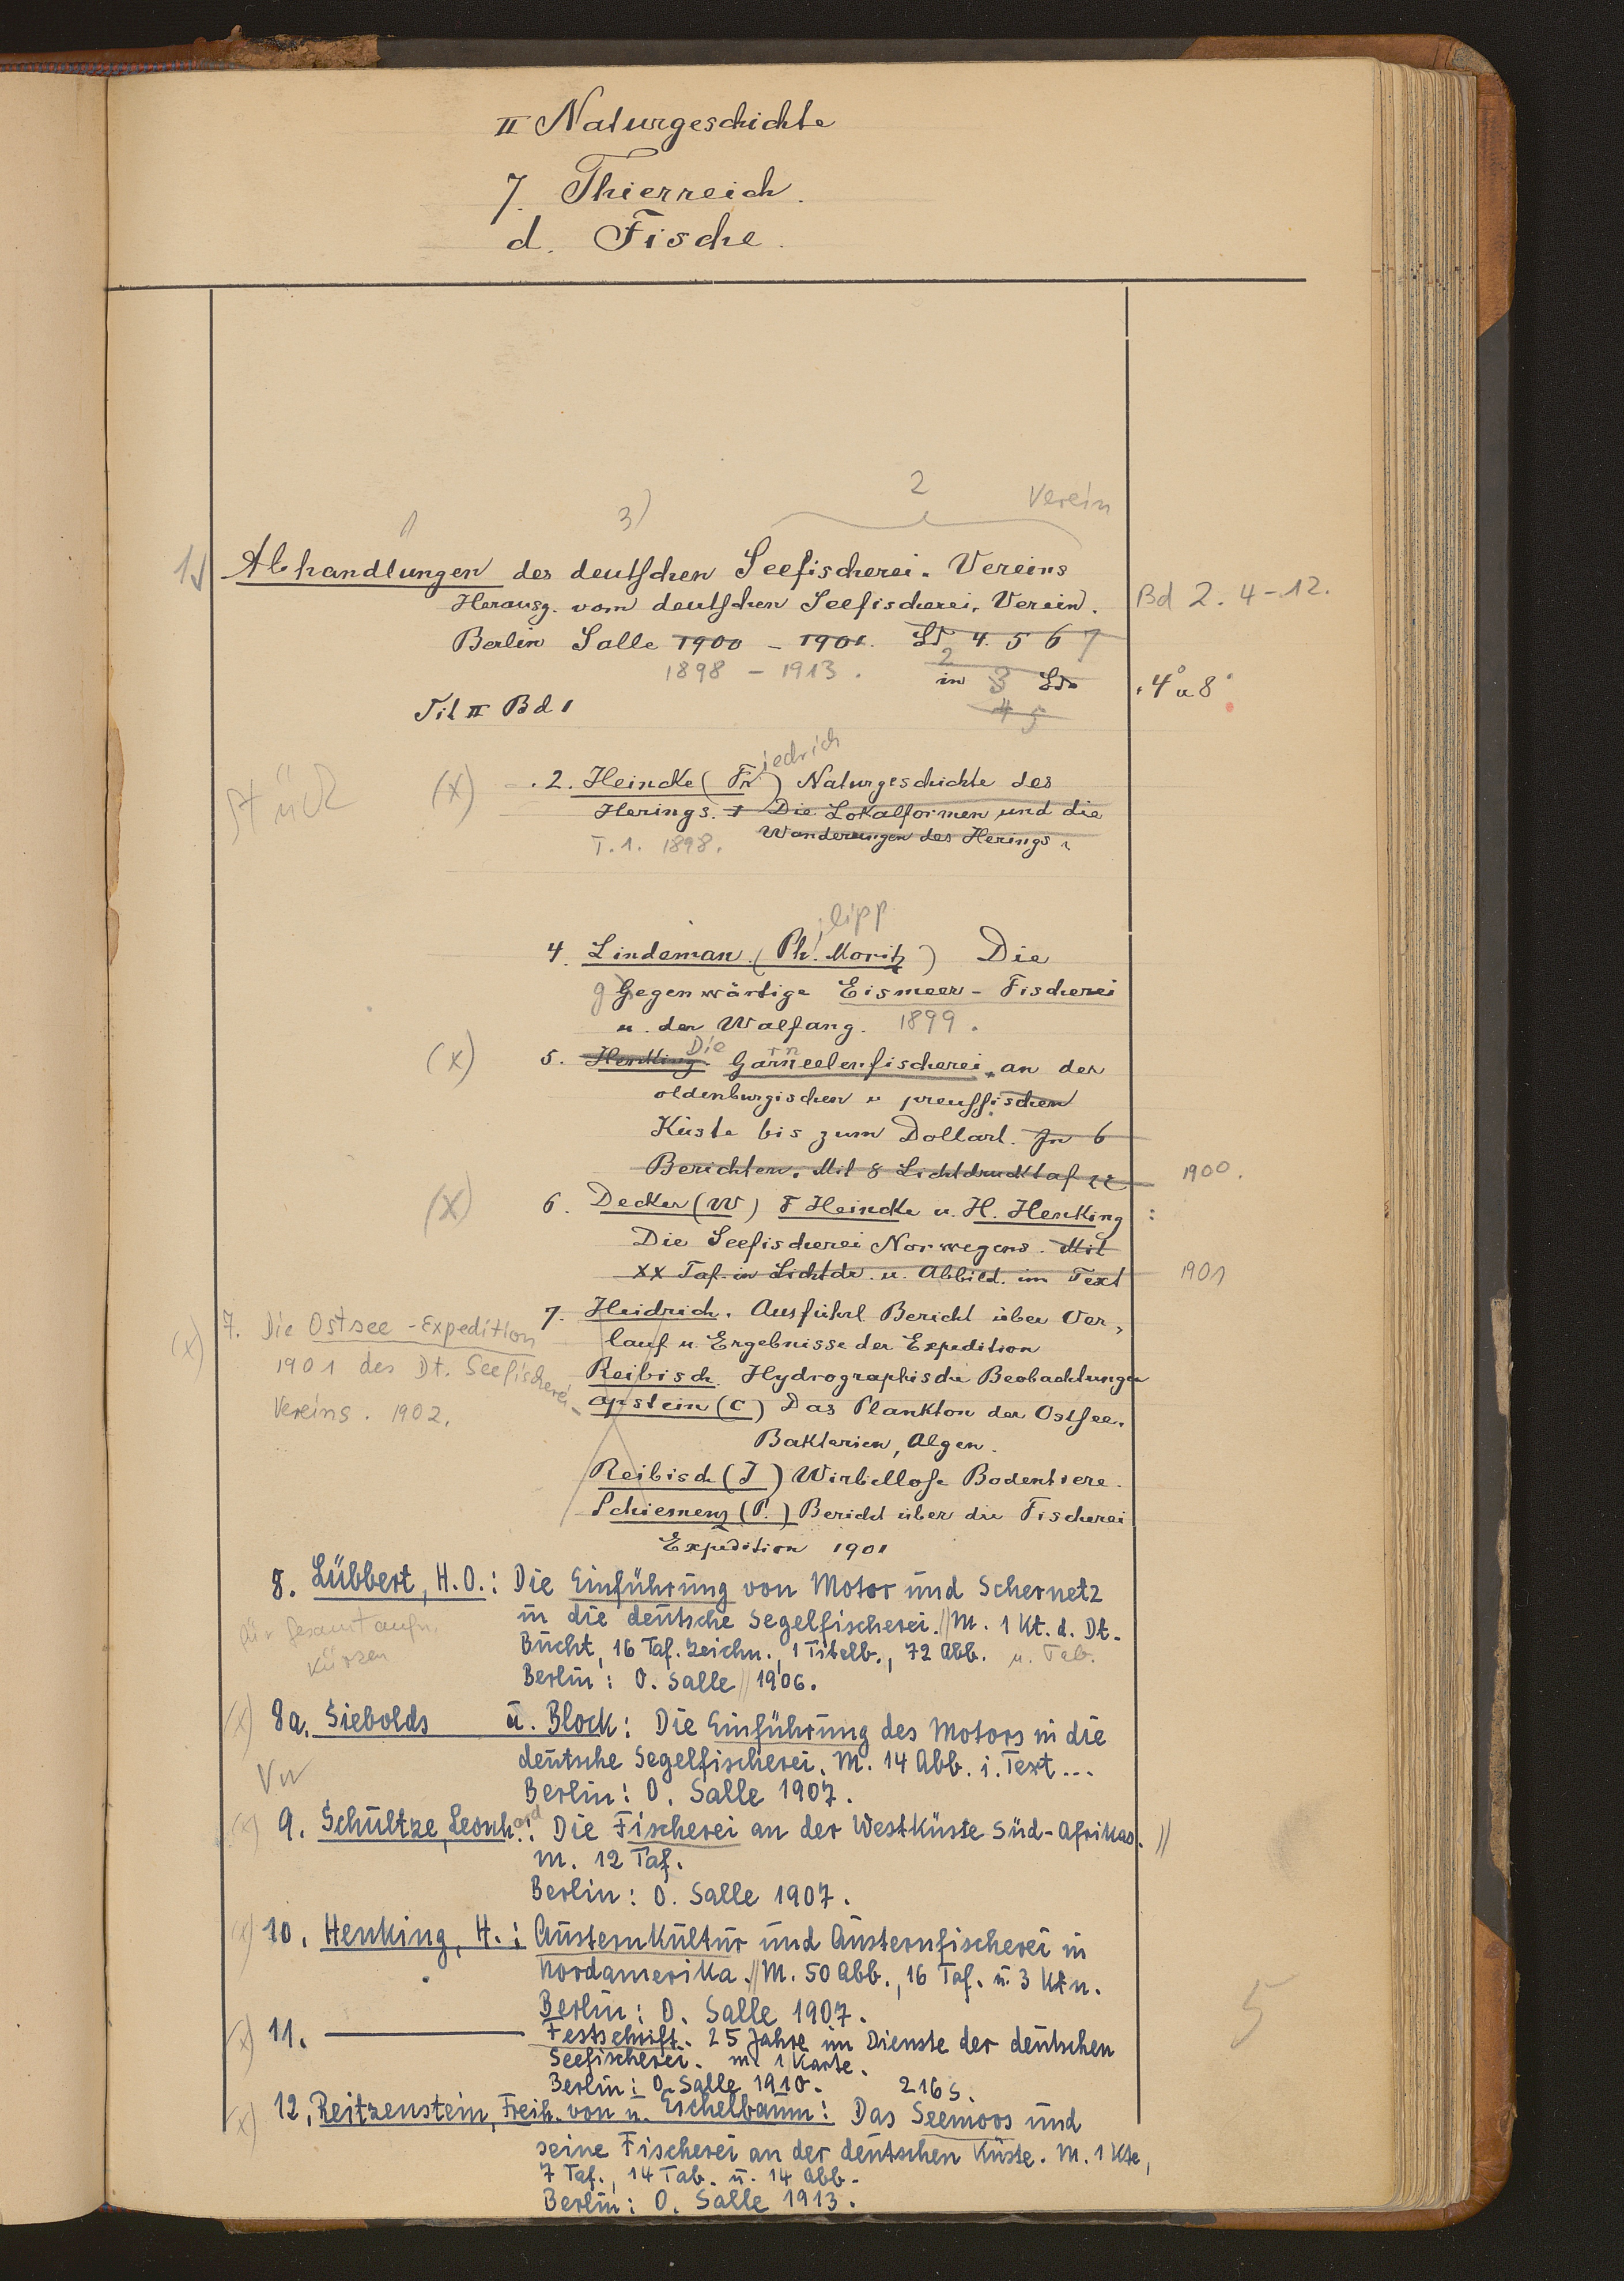 II Naturgeschichte
7. Thierreich.
d. Fische.
2 Verein
1 3)
1. Abhandlungen des deutschen Seefischerei-Vereins
Herausg. vom deutschen Seefischerei-Verein. Bd 2. 4-12.
Berlin Salle 1900 - 1901. Bd 4. 5 6 7
1898 - 1913. 2 in 3 Bdn 4° u 8°
Tit II Bd 1 4 5
iedrich
Stück (x) 2. Heincke (Fr) Naturgeschichte des
Herings. I Die Lokalformen und die
T. 1. 1898. Wanderungen des Herings.
ilipp
4. Lindeman (Ph. Moritz) Die
g Gegenwärtige Eismeer-Fischerei
u. der Walfang. 1899.
(x) 5. Henking. Die Garneelenfischerei an der
oldenburgischen u preussischen
Küste bis zum Dollart. In 6
Berichten. Mit 8 Lichtdrucktaf 1900.
(x) 6. Decker (W) F Heincke u. H. Henking :
Die Seefischerei Norwegens. Mit
XX Taf. in Lichtdr. u. Abbild. im Text 1901
7. Heidrich. Ausführl Bericht über Ver-
(x) 7. Die Ostsee-Expedition lauf u. Ergebnisse der Expedition
1901 des Dt. Seefischerei- Reibisch Hydrographische Beobachtungen
Vereins. 1902. Apstein (C) Das Plankton der Ostsee.
Bakterien, Algen.
Reibisch (J) Wirbellose Bodentiere.
Schiemenz (P.) Bericht über die Fischerei
Expedition 1901
8. Lübbert, H.O.: Die Einführung von Motor und Schernetz
in die deutsche Segelfischerei.// M. 1 Kt. d. Dt.
für Gesamtaufn. Bucht, 16 Taf. Zeichn., 1 Titelb., 72 Abb. u. Tab.
kürzen Berlin: O. Salle // 1906.
(x) 8a. Siebolds u. Block: Die Einführung des Motors in die
deutsche Segelfischerei. M. 14 Abb. i. Text...
Berlin: O. Salle 1907.
(x) 9. Schultze, Leonh.ard: Die Fischerei an der Westküste Süd-Afrikas. //
M. 12 Taf.
Berlin: O. Salle 1907.
(x) 10. Henking, H.: Austernkultur und Austernfischerei in
Nordamerika.// M. 50 Abb., 16 Taf. u. 3 Ktn.
Berlin: O. Salle 1907.
5
(x) 11. ——— Festschrift. 25 Jahre im Dienste der deutschen
Seefischerei. M. 1 Karte.
Berlin: O. Salle 1910. 216 S.
(x) 12. Reitzenstein, Freih. von u. Eschelbaum: Das Seemoos und
seine Fischerei an der deutschen Küste. M. 1 Kte,
7 Taf., 14 Tab. u. 14 Abb.
Berlin: O. Salle 1913.